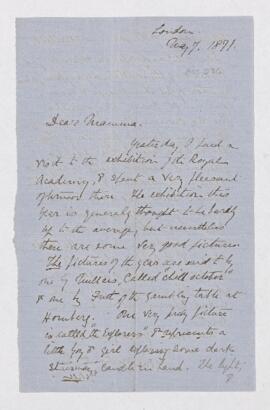 London
May 7. 1891.
Dear Mamma.
Yesterday I paid a
visit to the exhibition of the Royal
Academy, & spent a very pleasant
afternoon there. The exhibition this
year is generally thought to be hardly
up to the average, but nevertheless
there are some very good pictures.
The pictures of the year are said to be
one by Fildes, called "the doctor"
& one by of the gambling table at
Homberg. One very pretty picture
is called "the Explorers" & represents a
little boy & girl exploring some dark
stairway, candle in hand. The light,